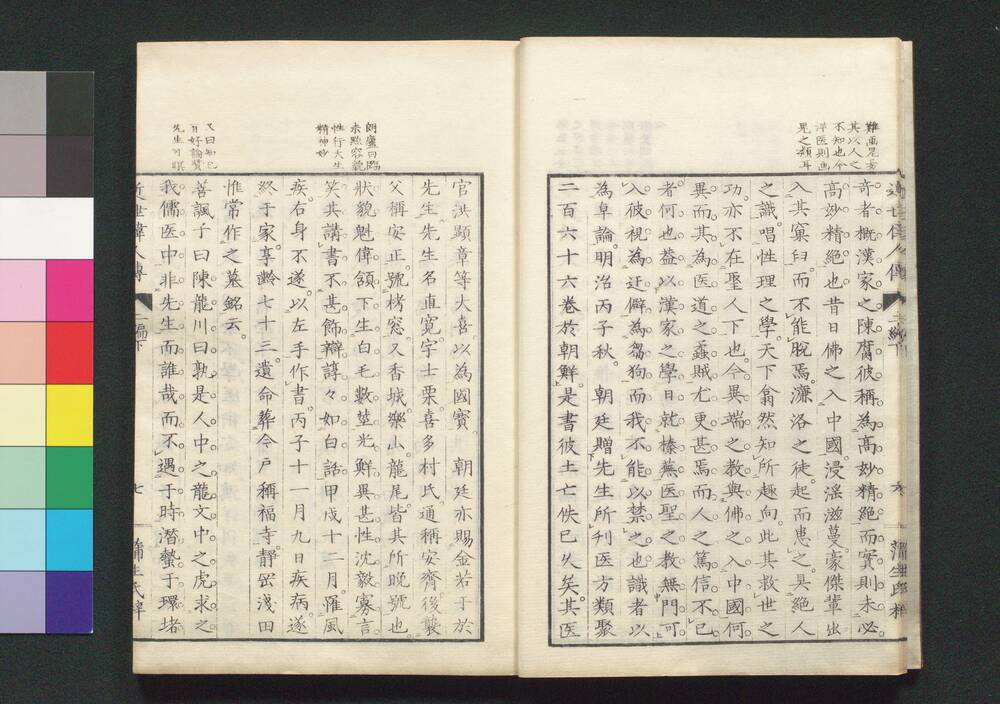 難画咫尺
其以人之
不知也今
洋医則画
晃之類耳
奇者概漢家之陳腐彼称為高妙精絶而實則未必
高妙精絶也昔日佛之入中國浸淫滋蔓豪傑輩出
入其窠臼而不能脱焉濂洛之徒起而患之具絶人
之識唱性理之學天下翕然知所趣向此其救世之
功亦不在聖人下也今異端之教與佛之入中國何
異而其為医道之蟊賊尤更甚焉而人之篤信不已
者何也蓋以漢家之學日就榛蕪医聖之教無門可
入彼視為迂僻為芻狗而我不能以禁之也識者以
為卓論明治丙子秋 朝廷贈先生所刊医方類聚
二百六十六巻於朝鮮是書彼土亡佚已久矣其医
官洪顯章等大喜以為國寳 朝廷亦賜金若干於
先生先生名直寛字士栗喜多村氏通稱安齊後襲
父稱安正號栲窓又香城樂山龍尾皆其所晩號也
狀貌魁偉頷下生白毛数莖光鮮異甚性沈毅寡言
笑其講書不甚飾辯諄々如白話甲戌十二月罹風
疾右身不遂以左手作書丙子十一月九日疾病遂
終于家享齡七十三遺命葬今戸稱福寺靜岡淺田
惟常作之墓銘云
善諷子曰陳龍川曰孰是人中之龍文中之虎求之
我儒医中非先生而誰哉而不遇于時潛蟄于環堵
朗廬曰臨
未點容貌
性行大生
精神妙
又曰知己
可好論贊
先生可瞑
近世偉人傳
二編下
七
蒲生氏梓